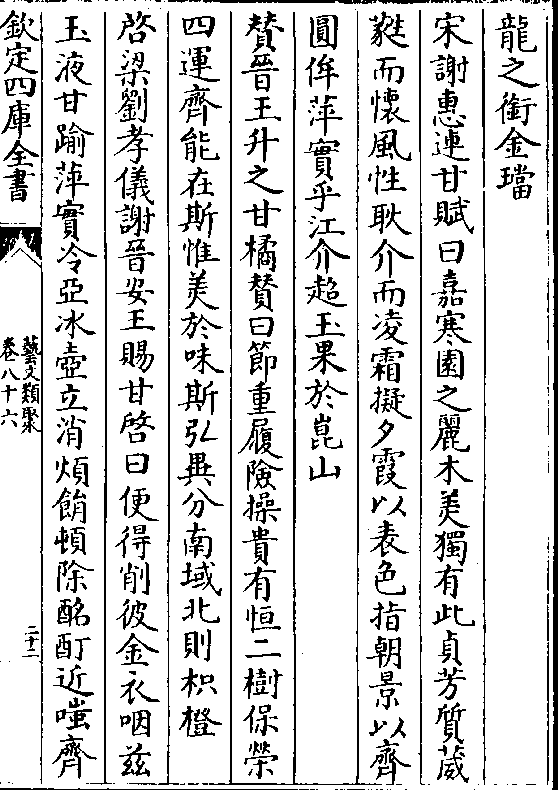 龍之銜金璫
宋謝惠連甘賦曰嘉寒園之麗木美獨有此貞芳質葳
蕤而懷風性耿介而凌霜擬夕霞以表色指朝景以齊
圓侔萍實乎江介超玉果於崑山
贊晉王升之甘橘贊曰節重履險操貴有恒二樹保榮
四運齊能在斯惟美於味斯弘異分南域北則枳橙
啓梁劉孝儀謝晉安王賜甘啓曰便得削彼金衣咽兹
玉液甘踰萍實冷亞冰壺立消煩餶頓除酩酊近嗤齊
欽定四庫全書
藝文類聚
卷八十六
二十二